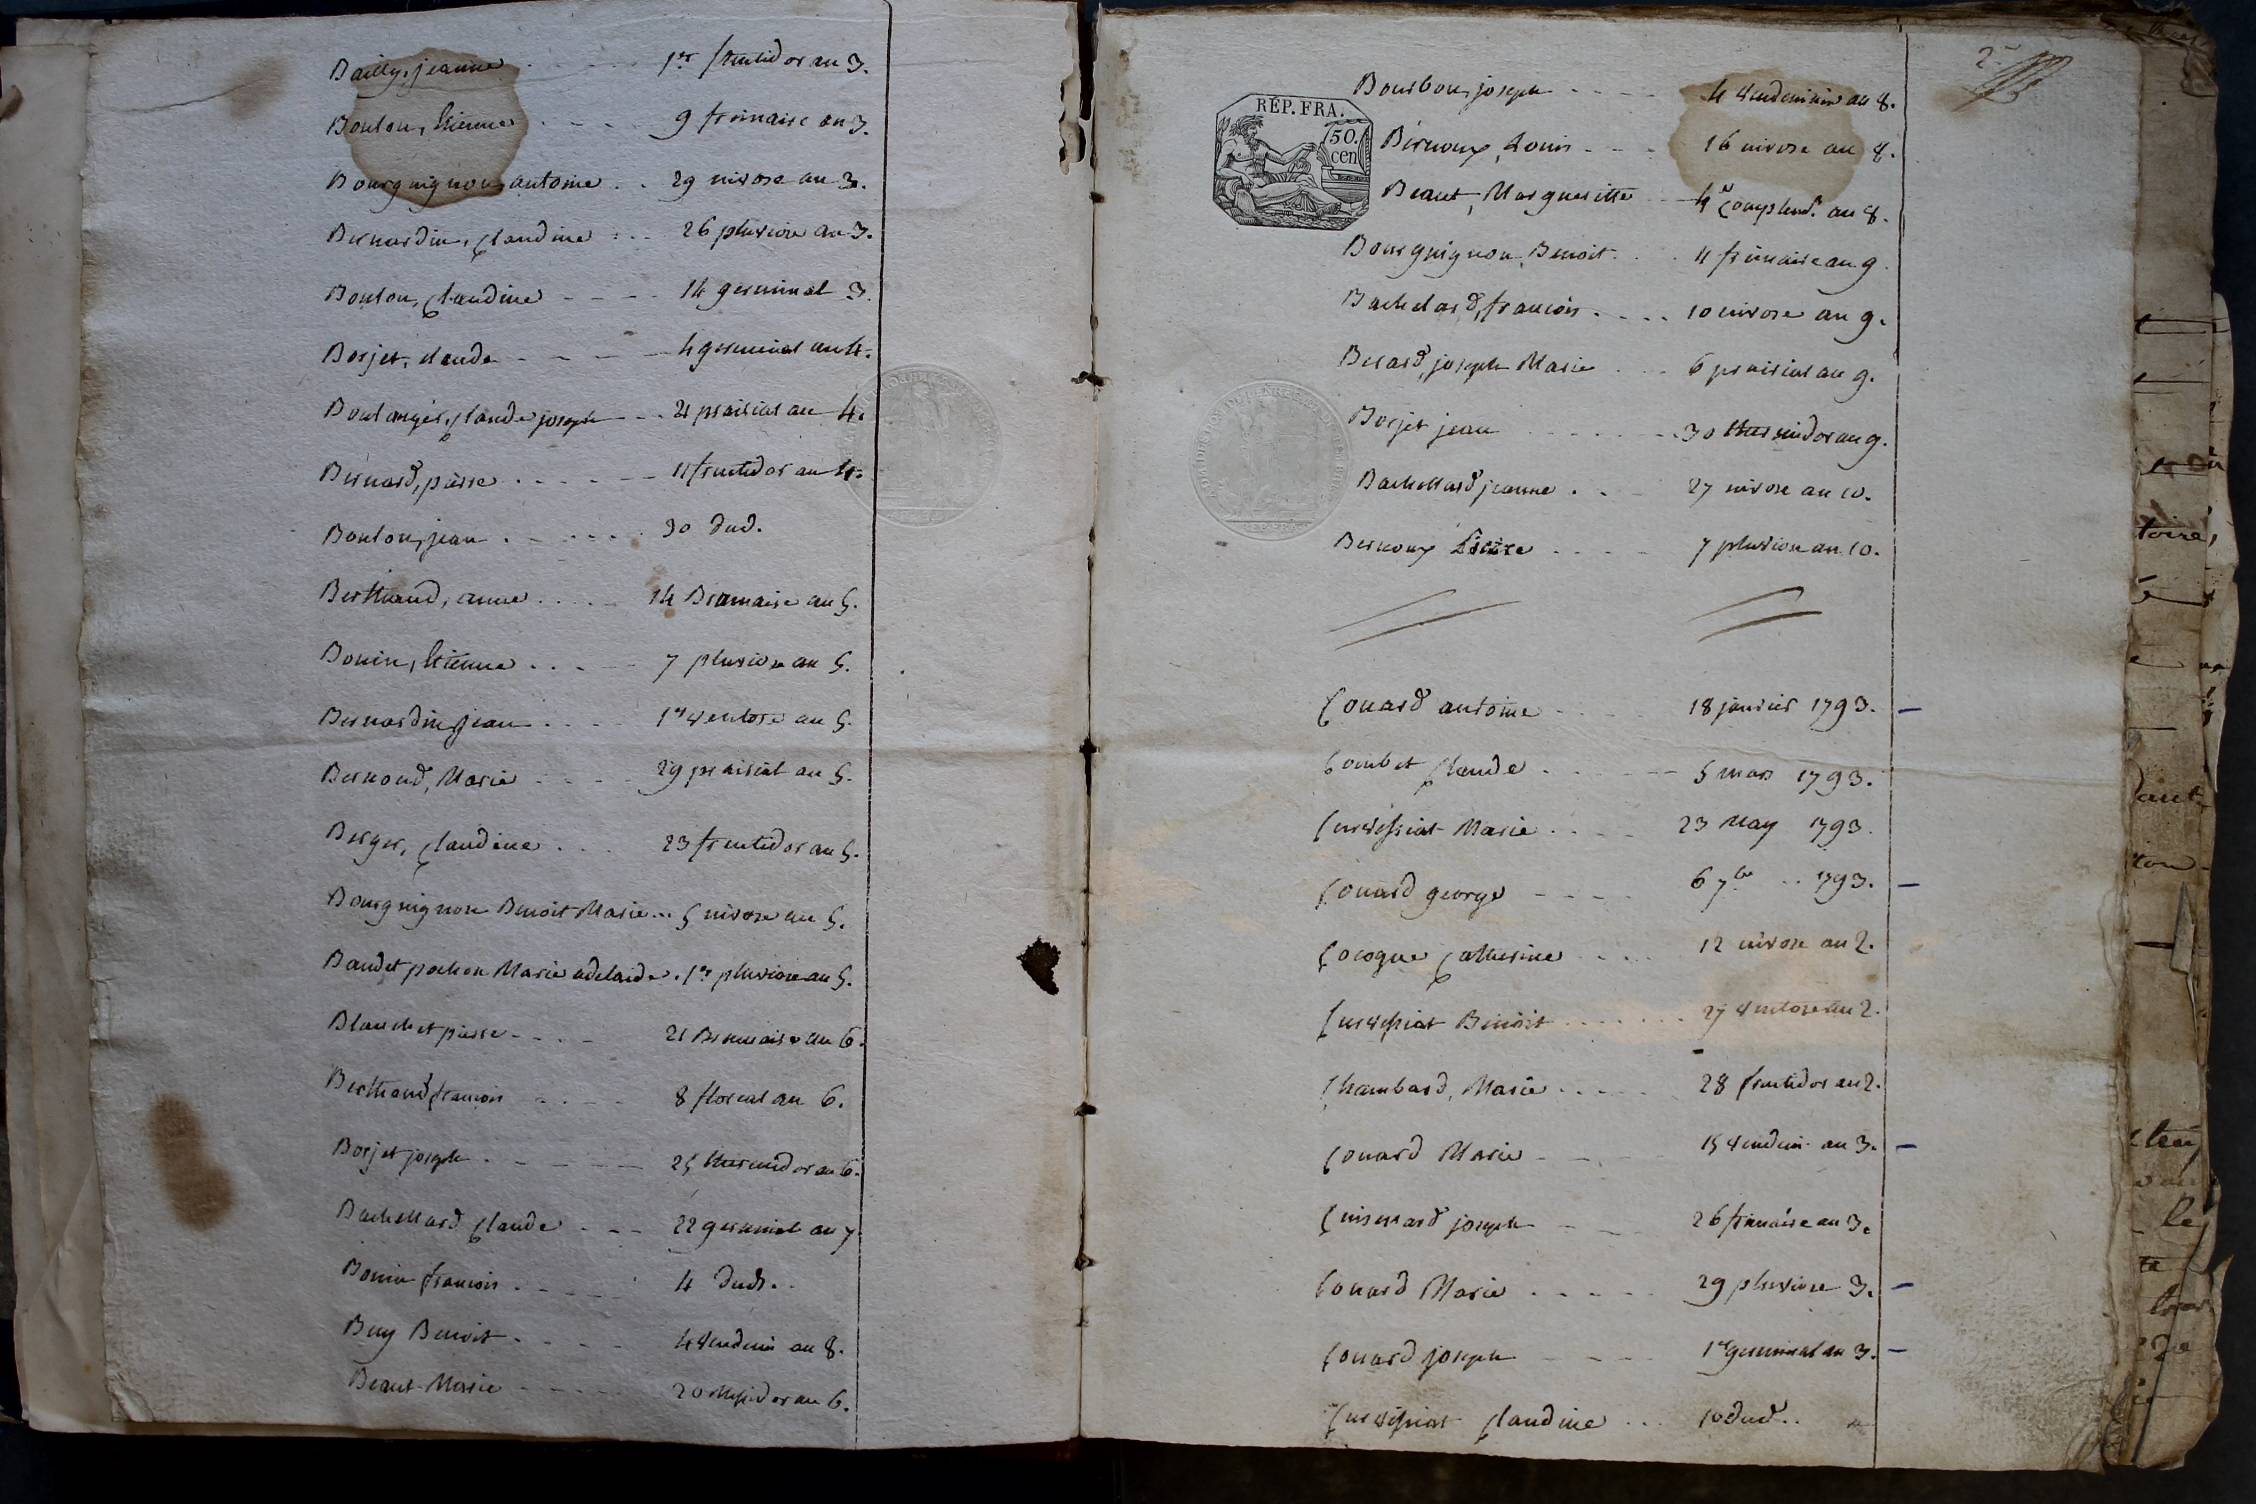 Bailly, jeanne . . . . 1er fructidor an 3.
Bouton, Etienne . . . 9 frimaire an 3.
Bourguignon, antoine . . 29 nivose an 3.
Bernardin, Claudine . . . 26 pluviose an 3.
Bouton, Claudine - - - - 14 germinal 3.
Borjet, claude - - - - - 4 germinal an 4.
Boulanger, Claude joseph - - . 21 prairial an 4.
Bernard, pierre . . . . - - 11 fructidor an 4.
Bouton, jean . - . . . . 30 dud.
Berthaud, anne . . . . . 14 Brumaire an 5.
Bonin, Etienne . . . - - 7 pluviose an 5.
Bernardin, jean . . . . 1er ventose an 5.
Bernoud, Marie - - - - 29 prairial an 5.
Berger, Claudine . . . 23 fructidor an 5.
Bourguignon Benoit Marie . . . 5 nivose an 5.
Baudet pochon Marie adelaide . 1er pluviose an 5.
Blanchet pierre - . . - 21 Brumaire an 6.
Berthaud francois - . - - 8 floreal an 6.
Borjet joseph . - - - - 25 thermidor an 6.
Bachellard Claude . - - 22 germinal an 7.
Bonin francois . . . . . 4 dud. .
Buy Benoit . . . - . 4 vendem an 8.
Beaut Marie - - - . . 20 messidor an 6.
2e
RÉP. FRA.
50.
cen
Bourbon, joseph . - - - 4 vendemiaire an 8.
Bernoux, Louis - - - 16 nivose an 8.
Beaut, Margueritte - - 4e Complemre an 8.
Bourguignon, Benoit . . . 11 frimaire an 9.
Bachelard, francois . . . . 10 nivose an 9.
Berard, joseph Marie . . . 6 prairial an 9.
Borjet jean . . . . . . . 30 thermidor an 9.
Bachellard jeanne . . - 27 nivose an 10.
Bernoux . . . . 7 pluviose an 10.
Couard antoine - - - . 18 janvier 1793. -
Combet Claude . . - - - 5 mars 1793.
Curvessiat Marie . . . . 23 May 1793.
Couard george - - - - 6 7bre . . 1793. -
Cocogne Catherine . . . . 12 nivose an 2.
Curvessiat Benoit . . . . . . . 27 ventose an 2.
Chambard, Marie . . . . . 28 fructidor an 2.
Couard Marie - . . - . 15 vendem an 3. -
Cuisenard joseph - - - 26 frimaire an 3.
Couard Marie . . . . . 29 pluviose 3. -
Couard joseph - - - - 1er germinal an 3. -
Curvessiat Claudine . . . 10 dud . .